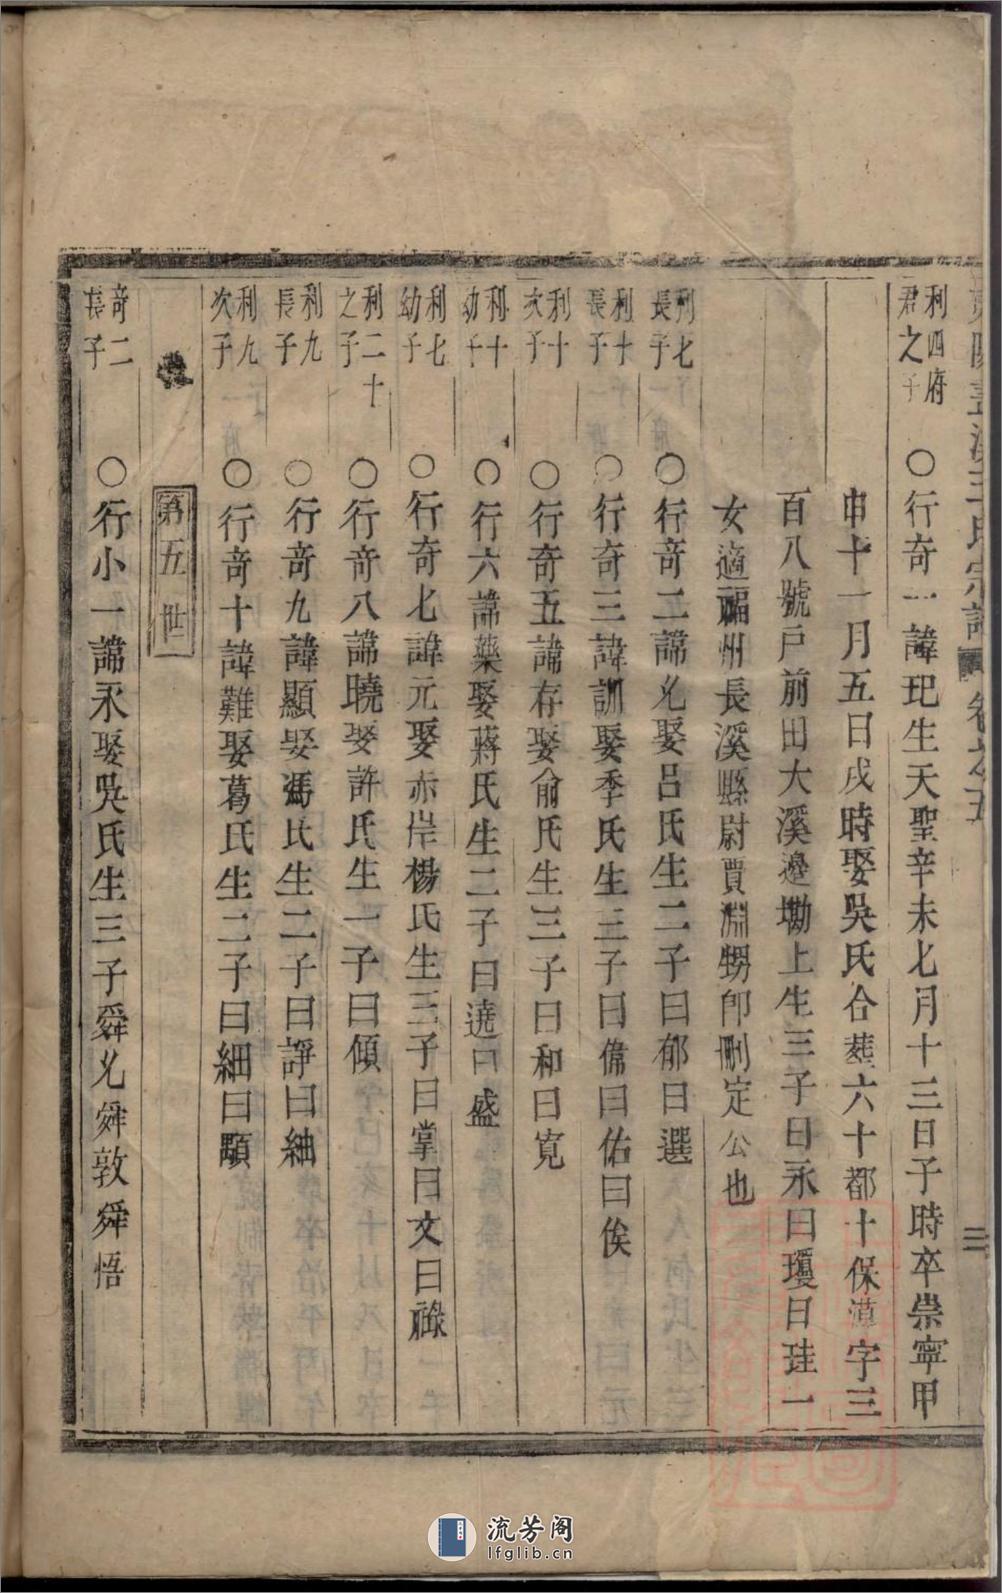 王氏宗譜 卷之五
三
利四府君之子
○行奇一諱玘生天聖辛未七月十三日子時卒崇寧甲
申十一月五日戌時娶吳氏合葬六十都十保漠字三
百八號戶前田大溪邊墈上生三子曰永曰瓊曰珪一
女適福州長溪縣尉賈淵甥即刪定公也
利七長子
○行奇二諱㕥娶呂氏生二子曰郁曰選
利十長子
○行奇三諱訓娶季氏生三子曰偉曰佑曰俟
利十次子
○行奇五諱存娶俞氏生三子曰和曰寬
利十幼子
○行六諱藥娶蔣氏生二子曰蕘曰盛
利七幼子
○行奇七諱元娶赤岸楊氏生三子曰掌曰文曰祿
利二十之子
○行奇八諱曉娶許氏生一子曰傾
利九長子
○行奇九諱顯娶馮氏生二子曰諍曰紬
利九次子
○行奇十諱難娶葛氏生二子曰細曰顯
第五世
奇二長子
○行小一諱永娶吳氏生三子舜㕥舜敦舜悟
流芳阁
lfglib.cn